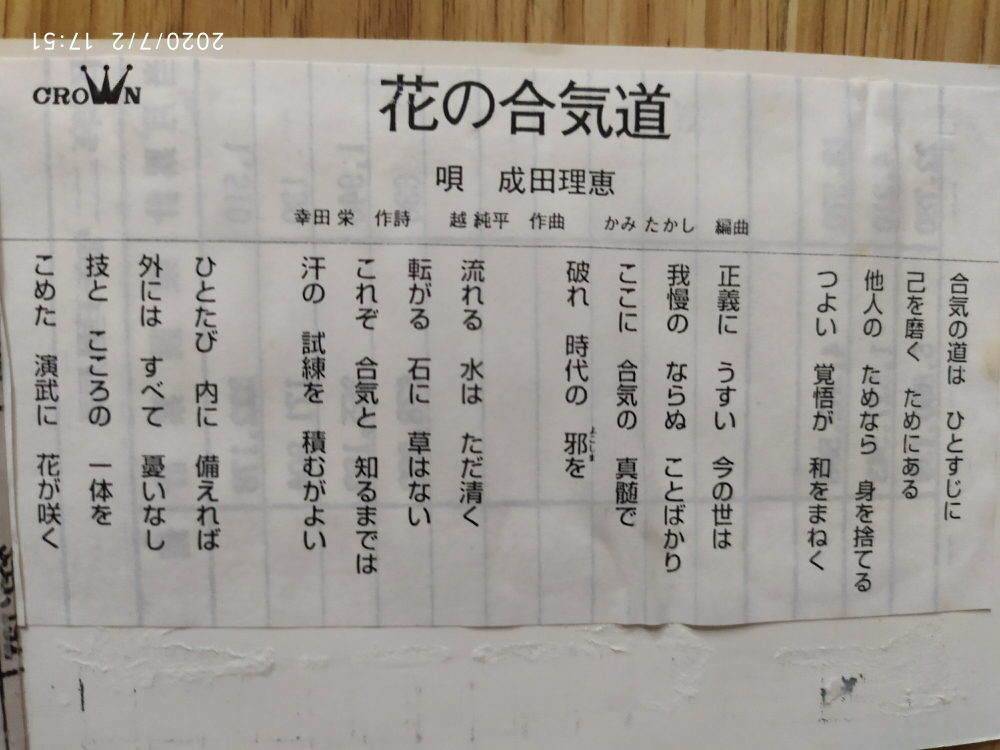 2020/7/2 17:51
CROWN
花の合気道
唄 成田理恵
幸田 栄 作詩 越 純平 作曲 かみ たかし 編曲
合気の道は ひとすじに
己を磨く ためにある
他人の ためなら 身を捨てる
つよい 覚悟が 和をまねく
正義に うすい 今の世は
我慢の ならぬ ことばかり
ここに 合気の 真髄で
破れ 時代の 邪を
よこしま
流れる 水は ただ清く
転がる 石に 草はない
これぞ 合気と 知るまでは
汗の 試練を 積むがよい
ひとたび 内に 備えれば
外には すべて 憂いなし
技と こころの 一体を
こめた 演武に 花が咲く